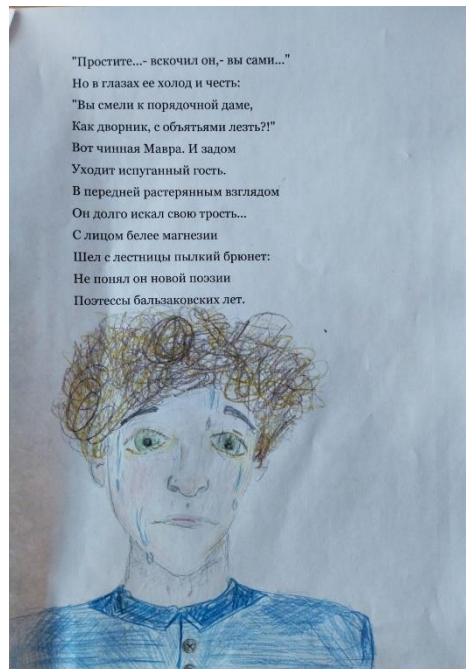 "Простите...- вскочил он,- вы сами..."
Но в глазах ее холод и честь:
"Вы смели к порядочной даме,
Как дворник, с объятьями лезть?!"
Вот чинная Мавра. И задом
Уходит испуганный гость.
В передней растерянным взглядом
Он долго искал свою трость...
С лицом белее магнезии
Шел с лестницы пылкий брюнет:
Не понял он новой поэзии
Поэтессы бальзаковских лет.